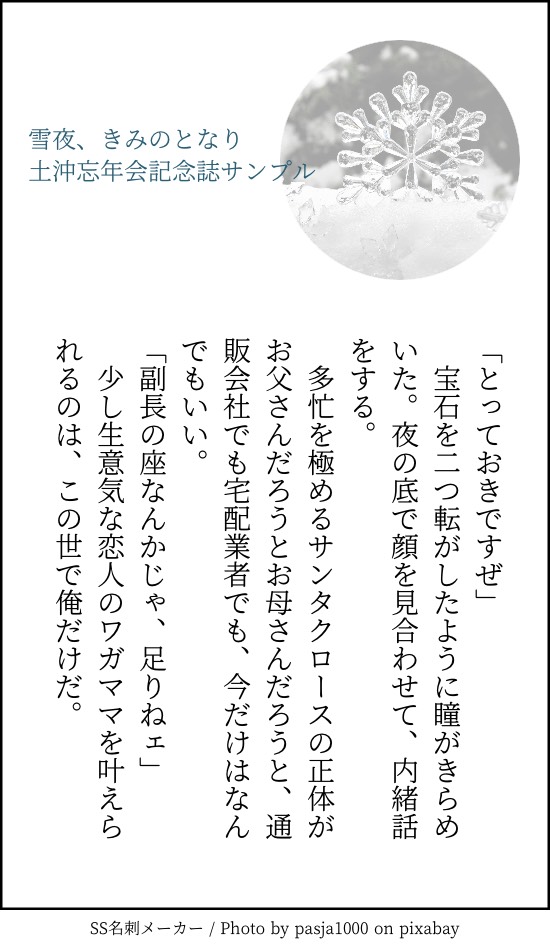 雪夜、きみのとなり
土沖忘年会記念誌サンプル
「とっておきですぜ」
　宝石を二つ転がしたように瞳がきらめ
いた。夜の底で顔を見合わせて、内緒話
をする。
　多忙を極めるサンタクロースの正体が
お父さんだろうとお母さんだろうと、通
販会社でも宅配業者でも、今だけはなん
でもいい。
「副長の座なんかじゃ、足りねェ」
　少し生意気な恋人のワガママを叶えら
れるのは、この世で俺だけだ。
SS名刺メーカー / Photo by pasja1000 on pixabay